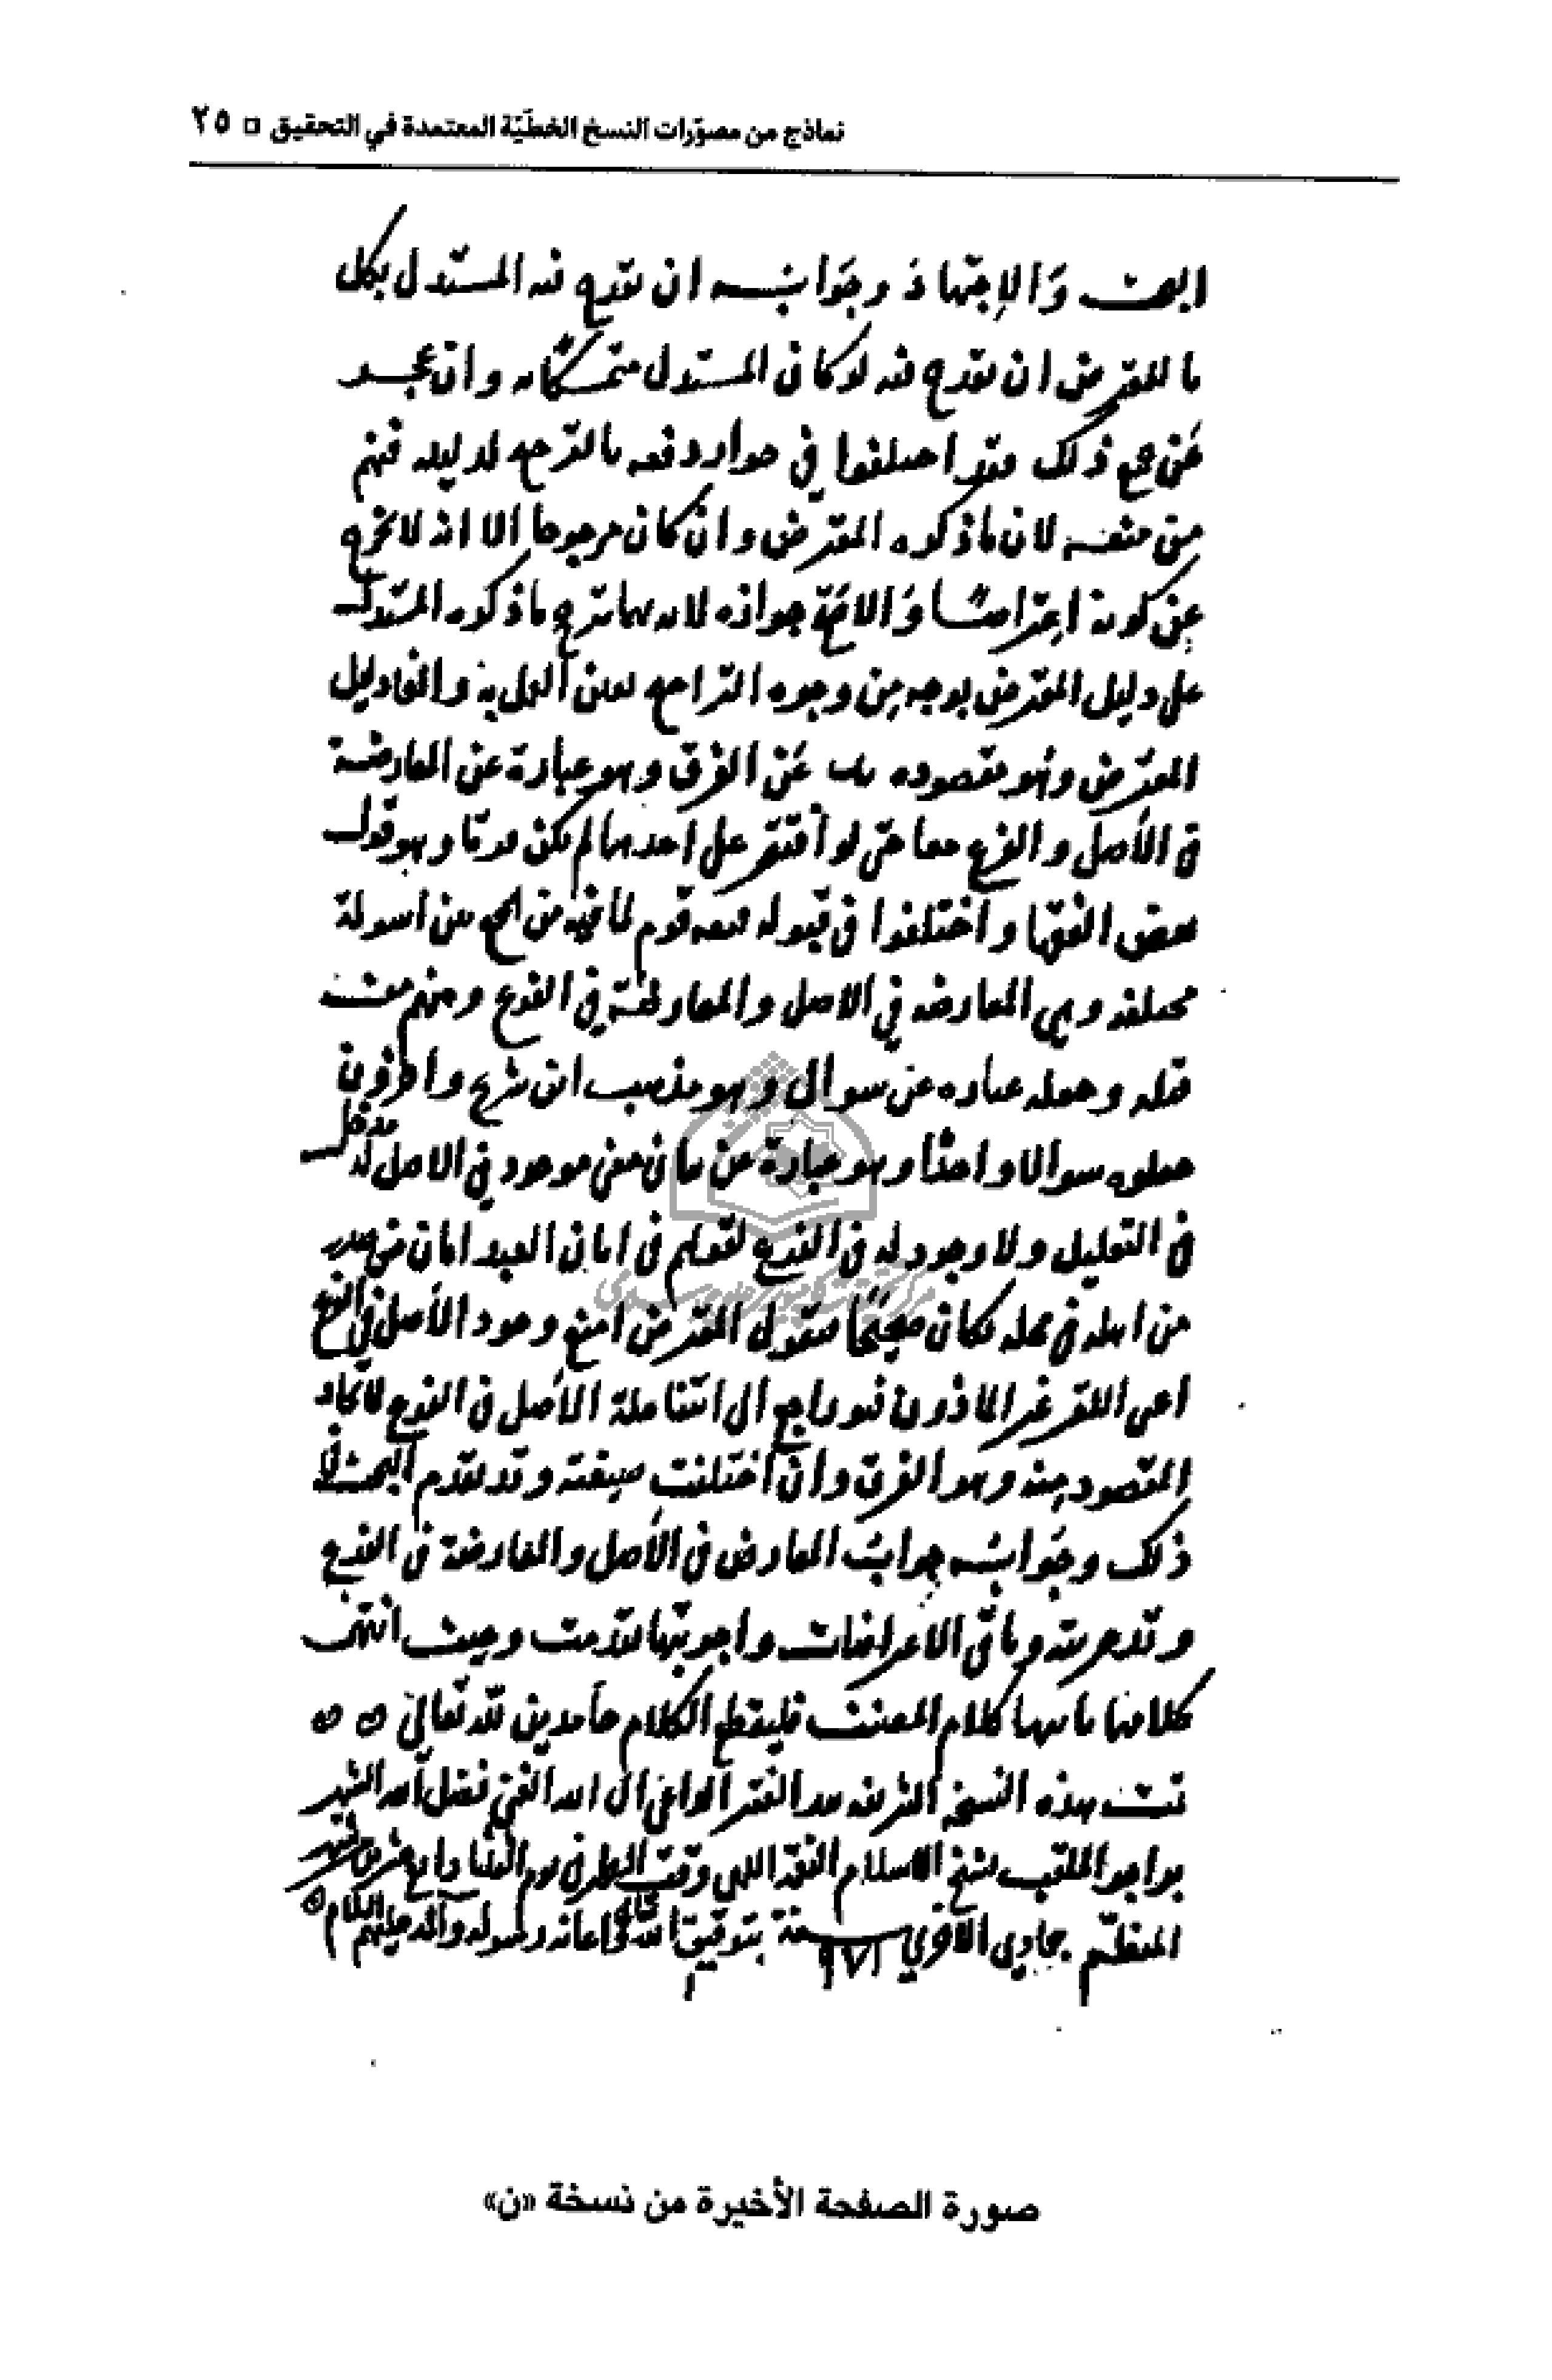 نماذج من مصوّرات النسخ الخطّيّة المعتمدة في التحقيق □ ٢٥
البحث وَالاِجتهاد وجَوابُـه ان يقدح فيه المستدل بكل
ما للمعترض ان يقدح فيه لو كان المستدل متمسكًا به وان عجـد
عَن جميع ذلك فقد اختلفوا في جواز دفعه بالترجيح لدليله فمنهم
مِن منعـه لان ما ذكره المعترض وان كان مرجوحا الا انه لا يخرج
عِن كونه اعتراضـًا وَالاصَح جوازه لانه مهما ترجح ما ذكره المستدل
على دليل المعترض بوجه مِن وجوه التراجيح تعين العمل به والغا دليل
المعترض وهو مقصوده عَن الفرق وهو عبارة عن المعارضة
في الأصل والفرع معا حتى لو أقتصر على احدهما لم يكن فرقا وهو قول
بعض الفقها واختلفوا في قبوله فمنعه قوم لما فيه من الجمع بين اسولة
مختلفة وهي المعارضه في الاصل والمعارضة في الفرع ومنهم مـن
قبله وجعله عباره عن سوال وهو مذهب ابن شريح واخرون
جعلوه سوالا واحدًا وهو عبارة عن بيان معنى موجود في الاصل له مدخل
في التعليل ولا وجود له في الفرع لقولهم في امان العبد امان صدر
من اهله في محله فكان صحيحًا فيقول المعترض امنع وجود الأصل في الفرع
اعني الغير الماذون فهو راجع الى انتفا علة الأصل في الفرع لاتحاد
المقصود مِنه وهو الفرق وان اختلفت صيغته وقد تقدم البحث في
ذلك وجَوابُـه جوابُ المعارض في الأصل والمعارضة في الفرع
وقد عرفته وباقي الاعراضات واجوبتها تقدمت وحيث انتهى
كلامنا بانتها كلام المصنف فليقطع الكلام حامدين لله تعالى
تمت هذه النسخة الشريفة الفقير الى الله الغني فضل الله الشهير
بواجو الملقب بشيخ الاسلام الفقه وقت الظهر في يوم رابع عشر من شهر
المعظّم جمادي الآخري سـنة ٩٧١ بتوفيق الله تعالى واعانه رسوله وآله عليهم السلام
صورة الصفحة الأخيرة من نسخة «ن»